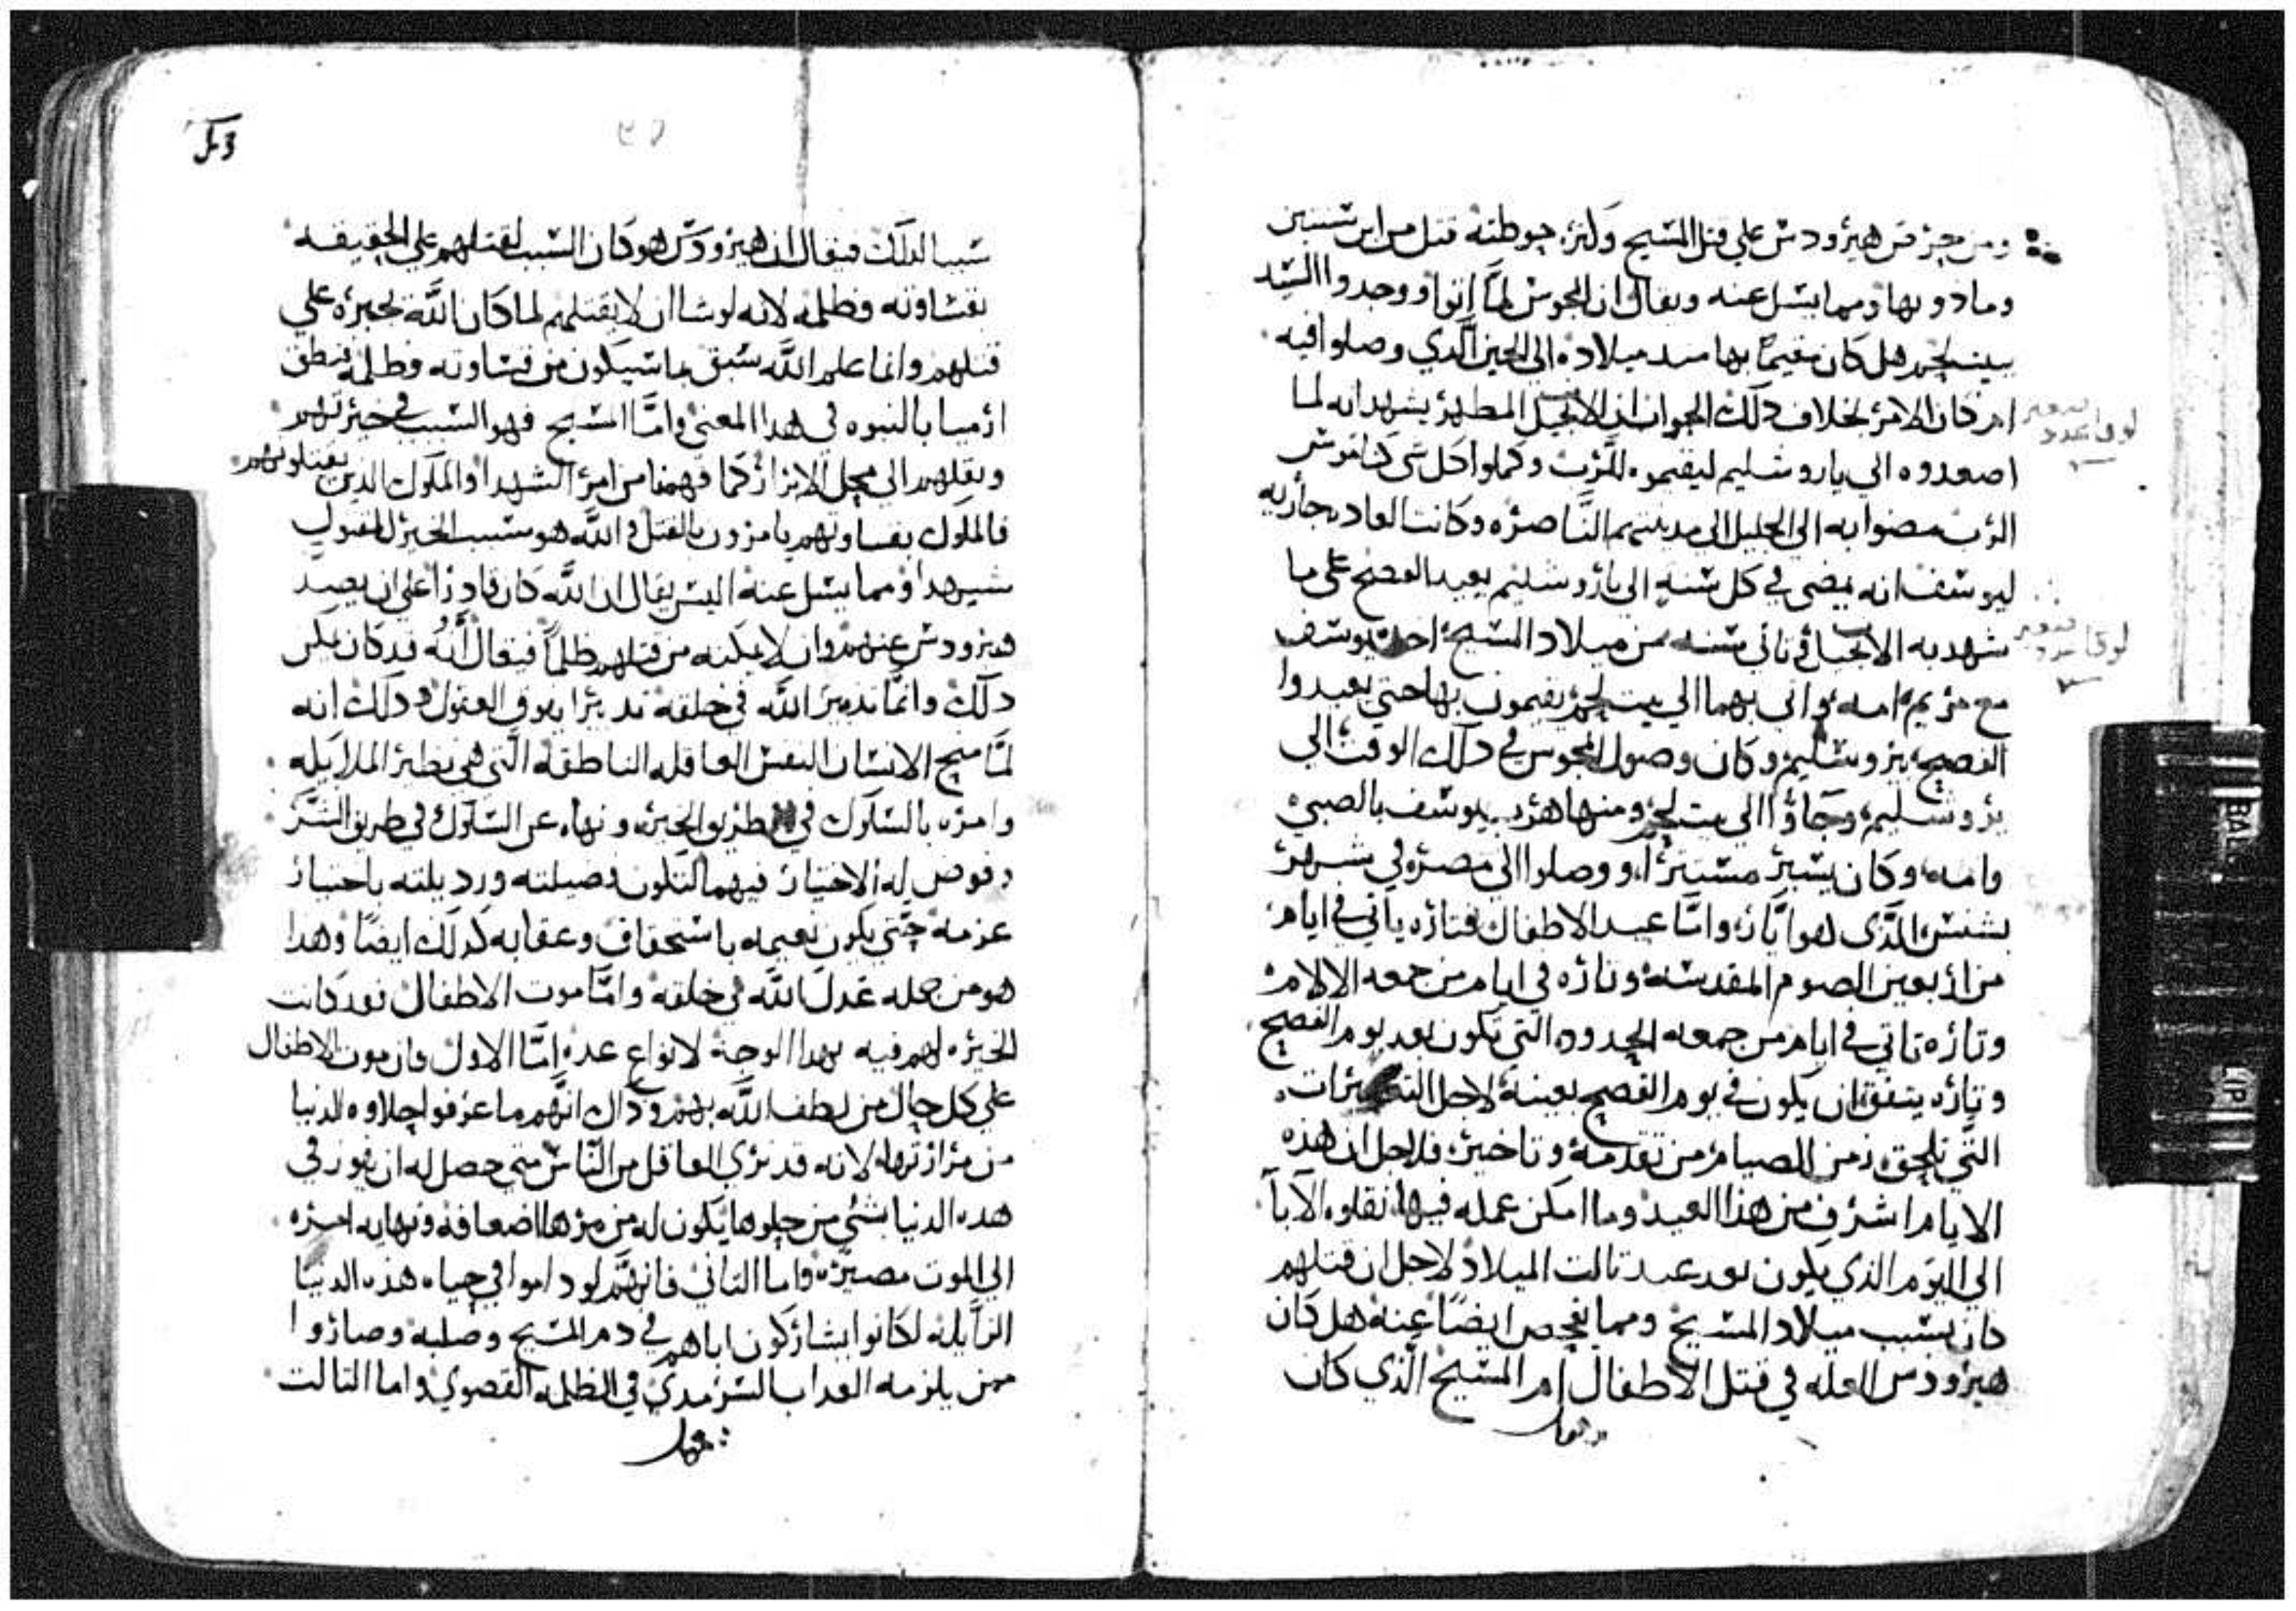 ومن حرقس هيرودس علي قتل المسيح وكثرة حوطته قتل من ابن سنتين
وما دونها ومما يسل عنه ويقال ان المجوس لما اتوا ووجدوا السيد
ببيت لحم هل كان مقيماً بها مند ميلاده الي الحين الذي وصلوا فيه
ام كان الامر بخلاف دلك الجواب ان الانجيل المطهر يشهد انه لما
اصعدوه الي ياروشليم ليقيموه للرب وكملوا كل شي كناموس
الرب مضوا به الي الجليل الي مدينتهم الناصره وكانت العاده جاريه
ليوسف انه يمضي في كل سنه الي ياروشليم بعيد الفصح علي ما
شهد به الانجيل في تاني سنه من ميلاد المسيح اخد يوسف
مع مريم امه واتي بهما الي بيت لحم يقيمون بها حتي يعيدوا
الفصح بيروشليم وكان وصول المجوس في دلك الوقت الي
يروشليم وجاؤا الي بيت لحم ومنها هرب يوسف بالصبي
وامه وكان يسير مستتراً ووصلوا الي مصر في شهر
بشنس الدي هو ايار واما عيد الاطفال فتاره ياتي في ايام
من اربعين الصوم المقدسه وتاره في ايام من جمعه الالام
وتاره تاتي في ايام من جمعه الحدود التي تكون بعد يوم الفصح
وتاره يتفق ان يكون في يوم الفصح بعينه لاجل
التي تلحق زمن الصيام من تقدمه وتاخير فلاجل ان هذه
الايام اشرف من هذا العيد وما امكن عمله فيها نقلوه الآباآ
الي اليوم الذي يكون بعد عيد تالت الميلاد لاجل ان قتلهم
كان بسبب ميلاد المسيح ومما يفحص ايضاً عنه هل كان
هيرودس العله في قتل الاطفال ام المسيح الذي كان
سبباً لدلك فيقال ان هيرودس هو كان السبب لقتلهم علي الحقيقه
بقساوته وظلمه لانه لو شا ان لا يقتلهم لما كان الله يجبره علي
قتلهم وانما علم الله سبق بما سيكون من قساوته وظلمه فنطق
ارميا بالنبوه في هدا المعني واما المسيح فهو السبب في خيرتهم
ونقلهم الي محل الابرار كما فهمنا من امر الشهدا والملوك الدين يقتلونهم
فالملوك بقساوتهم يامرون بالقتل والله هو سبب الخير للمقتول
شهيدا ومما يسل عنه اليس يقال ان الله كان قادراً علي ان يصد
هيرودس عنهم وان لا يمكنه من قتلهم ظلماً فيقال انه قد كان يمكن
دلك وانما تدبير الله في خلقه تدبيرا يفوق العقول ودلك انه
لما منح الانسان النفس العاقله الناطقه التي هي نظير الملايكه
وامره بالسلوك في طريق الخير ونهاه عن السلوك في طريق الشر
وفوض له الاختيار فيهما لتكون فضيلته ورديلته باختيار
عزمه حتي يكون نعيمه باستحقاق وعقابه كدلك ايضاً وهدا
هو من جمله عدل الله في خلقه واما موت الاطفال فقد كانت
الخيره لهم فيه بهدا الوجه لانواع عده اما الاول فان موت الاطفال
علي كل حال من لطف الله بهم وداك انهم ما عرفوا حلاوه الدنيا
من مرارتها لانه قد نري العاقل من الناس متي حصل له ان يفوز في
هده الدنيا بشي من حلوها يكون له من مرها اضعافه ونهايه امره
الي الموت مصيره واما التاني فانهم لو داموا في حياه هذه الدنيا
الزايله لكانوا يشاركون اباهم في دم المسيح وصلبه وصاروا
ممن يلزمه العداب السرمدي في الظلمه القصوي واما التالت